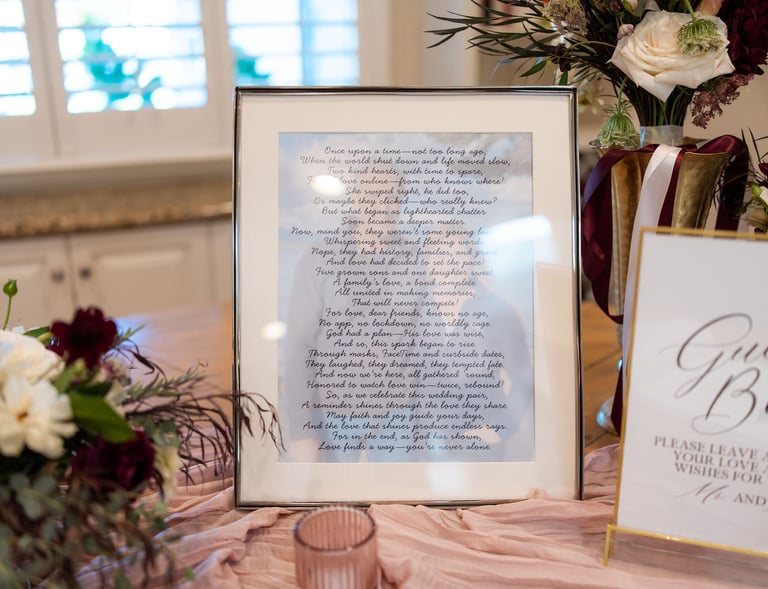 Once upon a time—not too long ago,
When the world shut down and life moved slow,
Two kind hearts, with time to spare,
love online—from who knows where!
She swiped right, he did too,
Or maybe they clicked—who really knew?
But what began as lighthearted chatter
Soon became a deeper matter.
Now, mind you, they weren't some young
Whispering sweet and fleeting words.
Nope, they had history, families, and
And love had decided to set the pace!
Five grown sons and one daughter sweet,
A family's love, a bond complete.
All united in making memories,
That will never compete!
For love, dear friends, knows no age,
No app, no lockdown, no worldly cage.
God had a plan—His love was wise,
And so, this spark began to rise.
Through masks, FaceTime and curbside dates,
They laughed, they dreamed, they tempted fate.
And now we're here, all gathered 'round,
Honored to watch love win—twice, rebound!
So, as we celebrate this wedding pair,
A reminder shines through the love they share.
May faith and joy guide your days,
And the love that shines produce endless rays.
For in the end, as God has shown,
Love finds a way—you're never alone.
PLEASE LEAVE
YOUR LOVE
WISHES FOR
Mr. AND